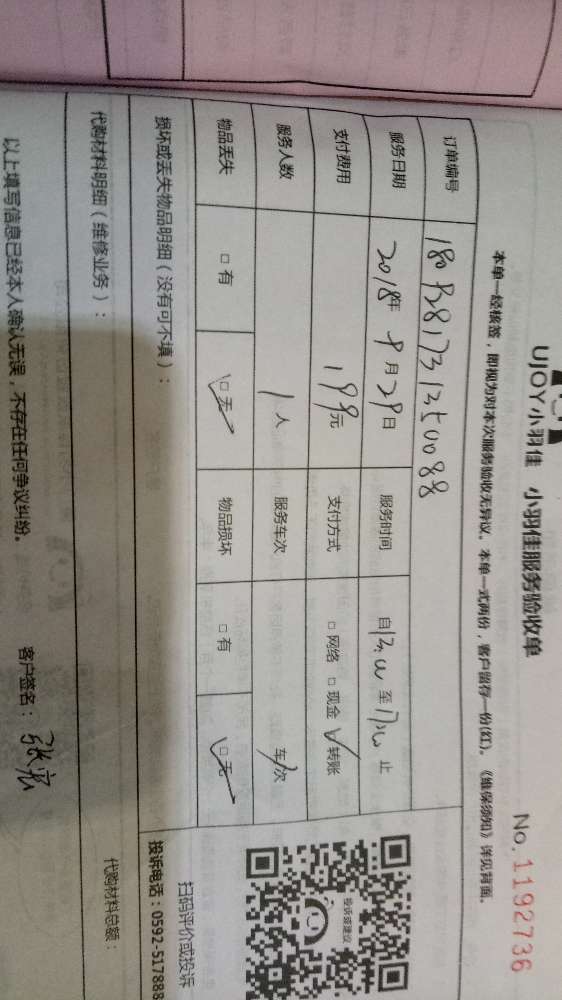 UJOY小羽佳 小羽佳服务验收单
No.1192736
本单一经核签，即视为对本次服务验收无异议。本单一式两份，客户留存一份(红)。《维保须知》详见背面。
订单编号
服务日期 2018年 9月29日 服务时间 自13:00至17:00止
支付费用 199元 支付方式 □网络 □现金 √转账
服务人数 1人 服务车次 车/次
物品丢失 □有 √□无 物品损坏 □有 √□无
损坏或丢失物品明细（没有可不填）：
投诉或建议
扫码评价或投诉
投诉电话：0592-517888
代购材料明细（维修业务）：
代购材料总额：
以上填写信息已经本人确认无误，不存在任何争议纠纷。
客户签名：